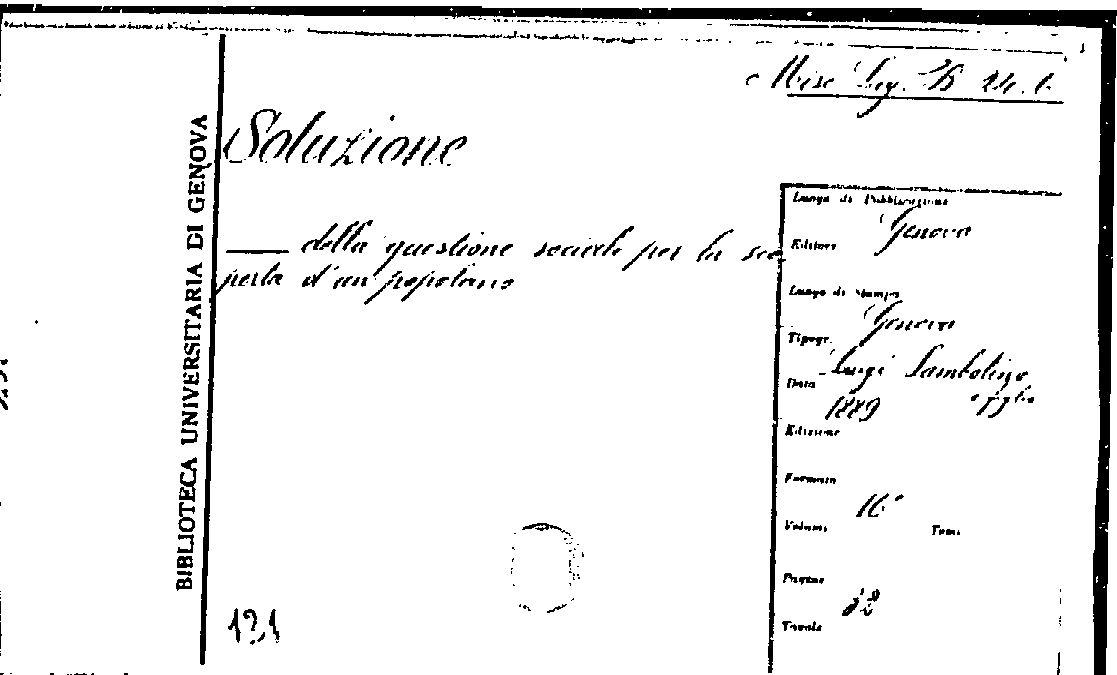 Misc Lig. B 24. 6
BIBLIOTECA UNIVERSITARIA DI GENOVA
Soluzione
— della questione sociale per la sco
perta d'un popolano
Luogo di Pubblicazione
Genova
Editore
Luogo di Stampa
Genova
Tipogr.
Luigi Sambolino
e figlio
Data
1889
Edizione
Formato
16°
Volumi
Tomi
Pagine
32
Tavole